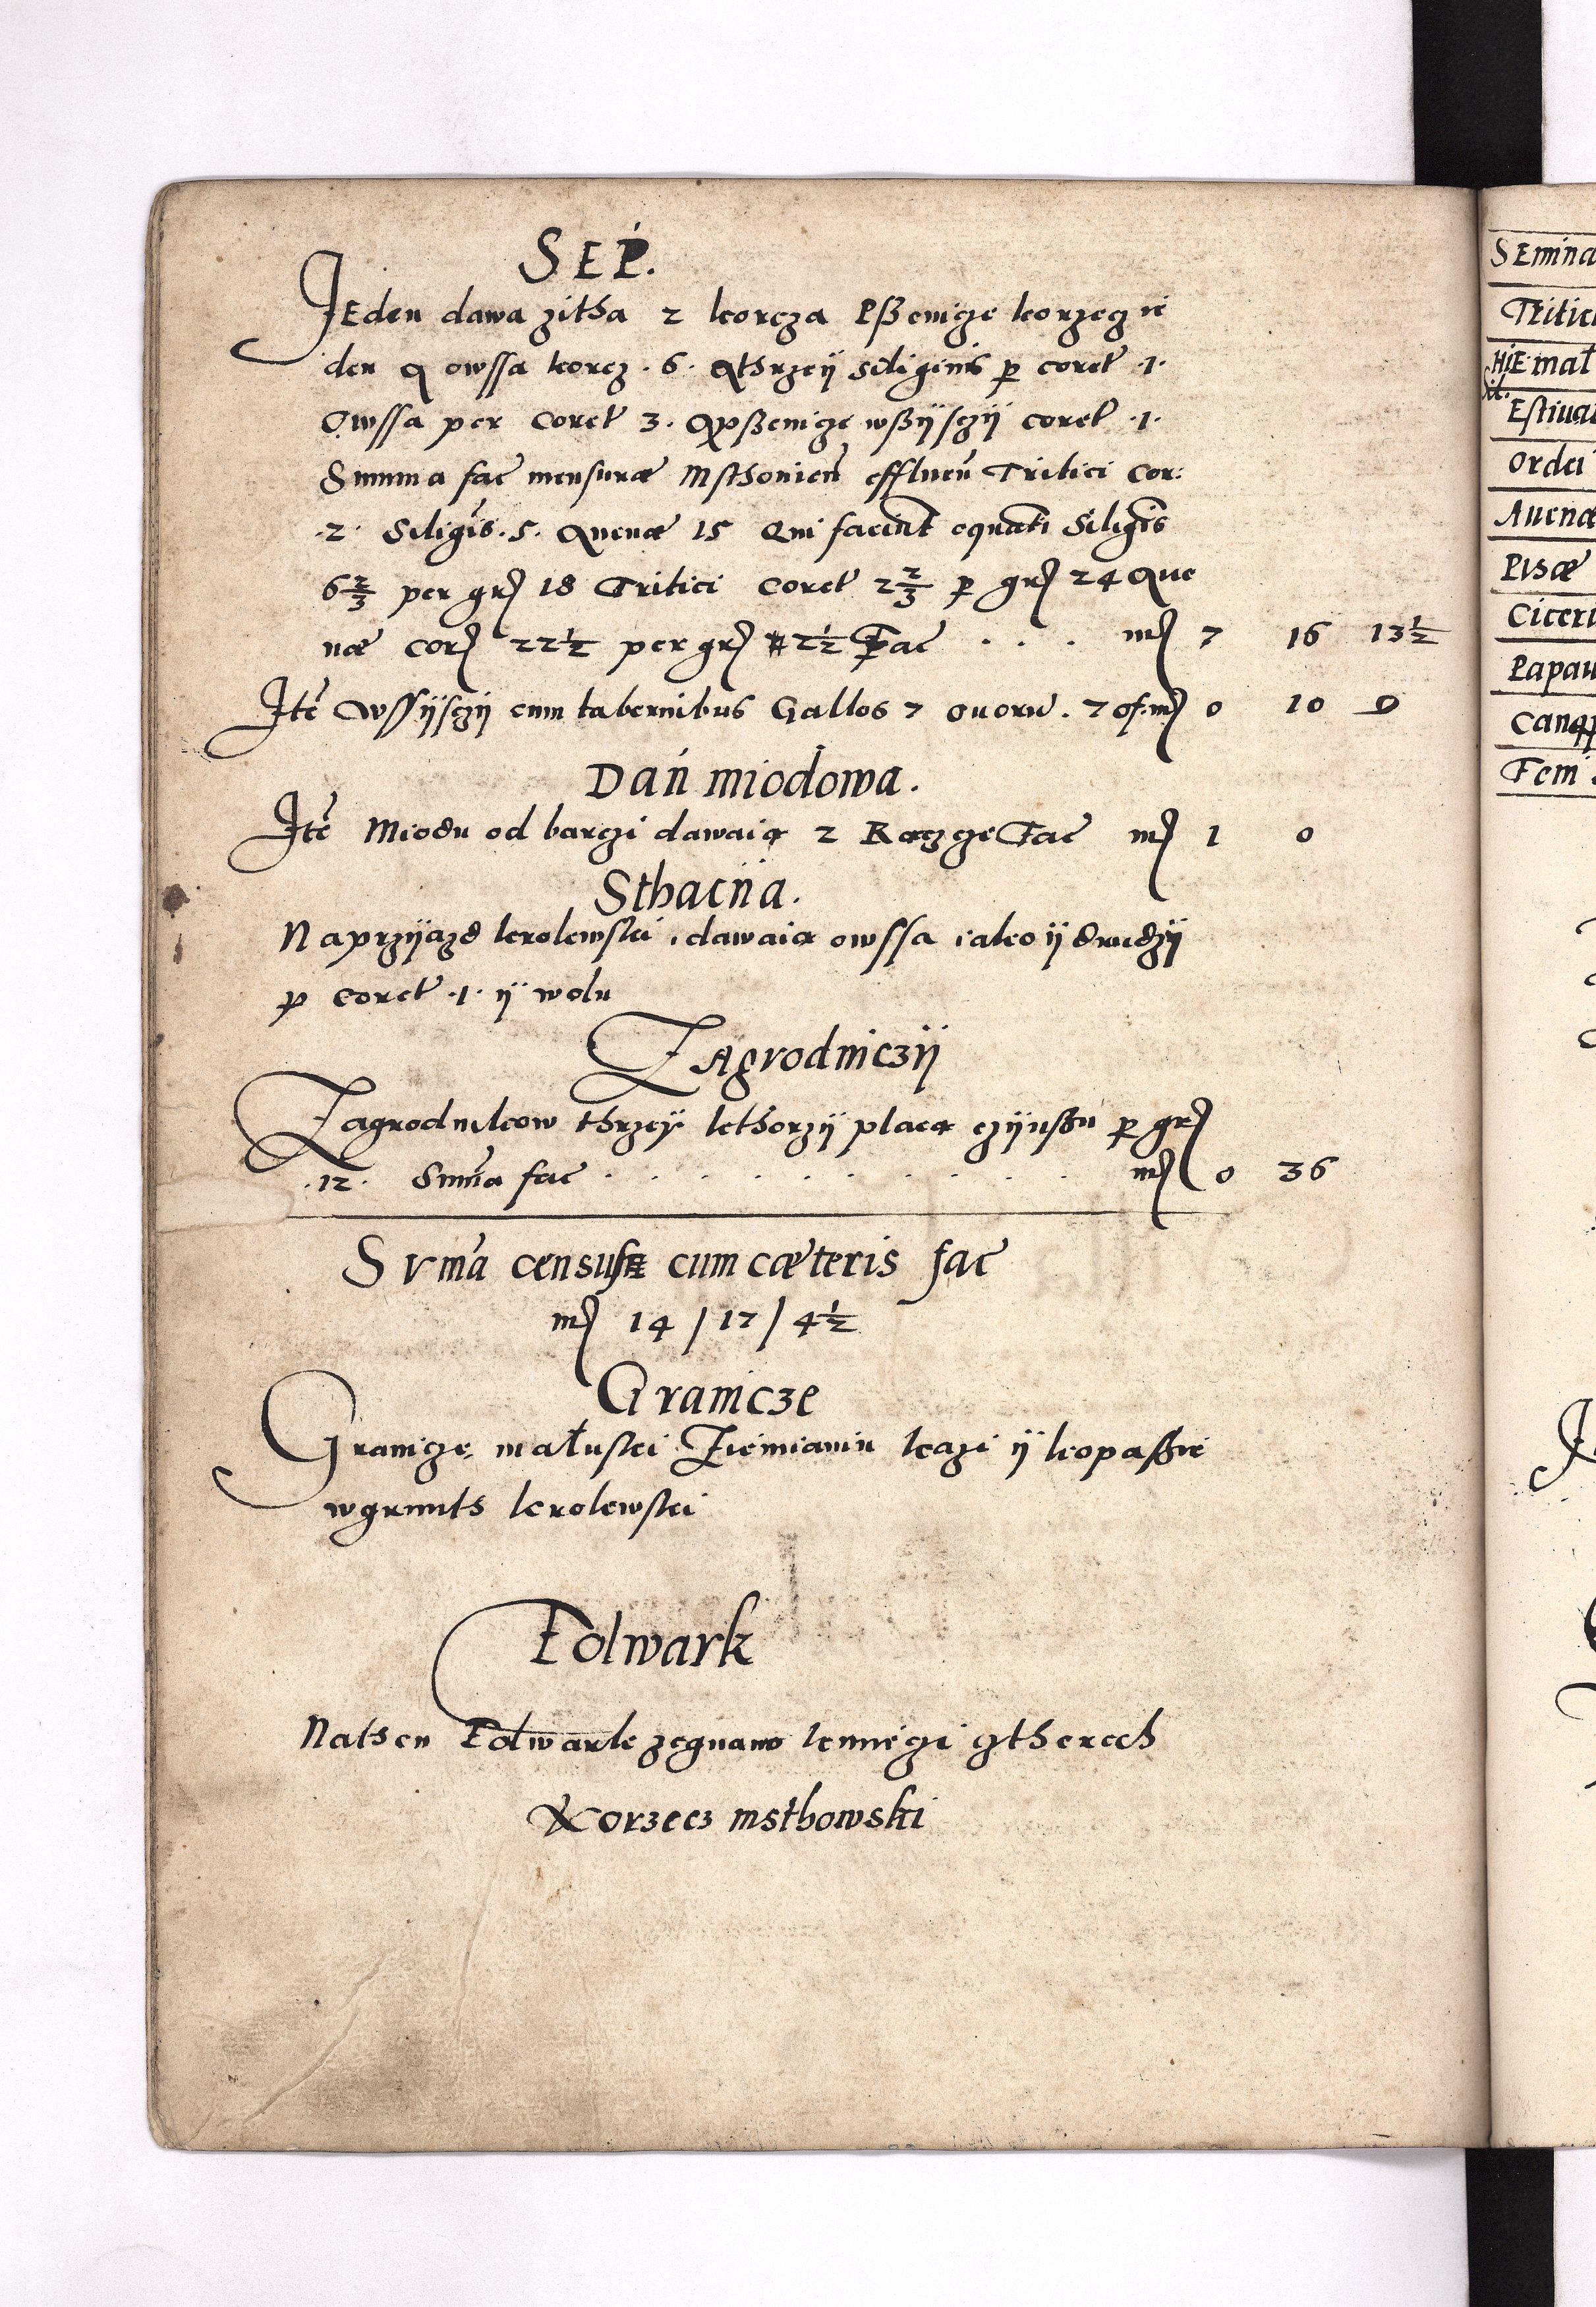 SEP.
JEden dawa zitha 2 korcza Pßenicze korzecz ie
den A owssa korcz . 6 . Athrzeÿ siliginis p coret .1.
Owssa per coret 3 . Apßenicze wßÿsczÿ coret .1.
Summa fac mensuræ Msthouien effluen Tritici Cor:
.2. Siligis . 5 . Auenæ 15 Qui faciut equati Siligis
6 2/3 per grs 18 Tritici Coret 2 2/3 p grs 24 Aue
næ Cors 22 1/2 per grs 2 1/2 Fac . . . ms 7 16 13 1/2
Ite Wssÿsczÿ cum tabernibus Gallos 7 ouoru . 70 f. ms 0 10 9
Dań miodowa.
Ite Miodu od barczi dawaią 2 Rączge Fac ms 1 0
Sthacÿa.
Naprzÿazd krolewski . dawaią owssa iako ÿ drudzÿ
p coret .1. ÿ wolu
ZAgrodniczÿ
Zagrodnikow thrzeÿ kthorzÿ placą czÿnßu p grs
.12. Suma fac . . . . . . . . . ms 0 36
SVma census cum cæteris fac
ms 14 / 17 / 4 1/2
Granicze
Granicze małuski Ziemianin kazi ÿ kopaßie
wgrunts krolewski
Folwark
Nathen Folwark zegnano kmieczi cztherech
Korzecz msthowski
SEmina
Tritici
HiEmal
Estiual
Ordei
Auenæ
Pisæ
Ciceri
Papau